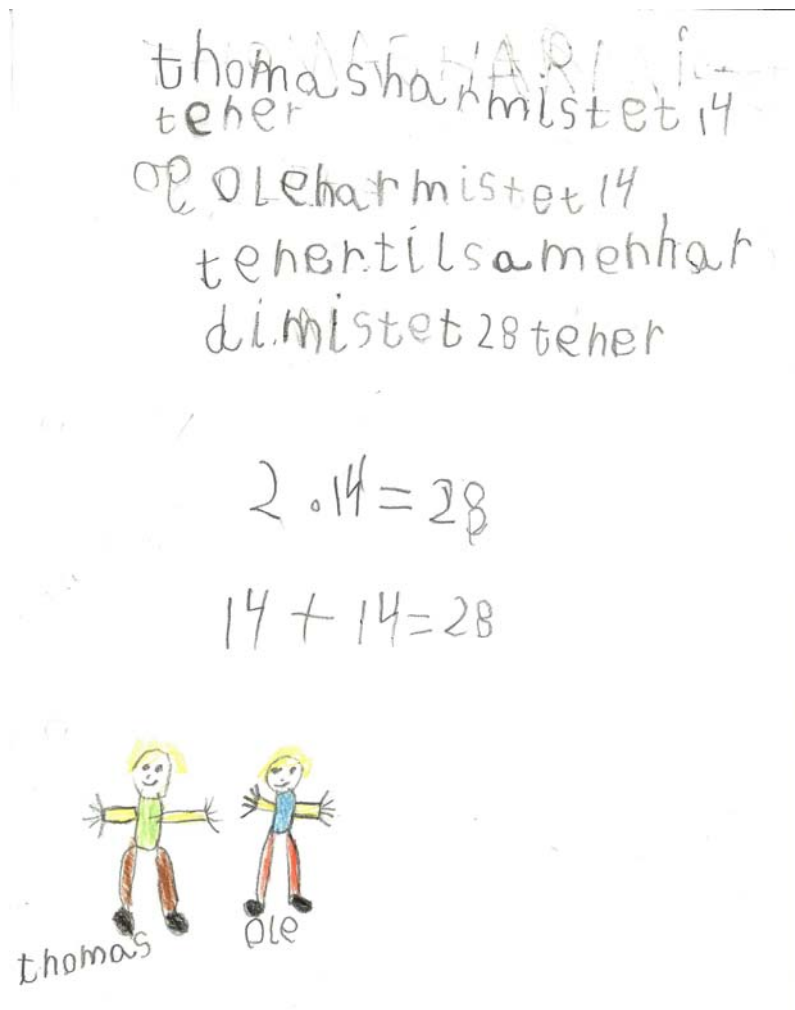 thomas har mistet 14
tener
og ole har mistet 14
tener. til samen har
di. mistet 28 tener
2 . 14 = 28
14 + 14 = 28
thomas
ole